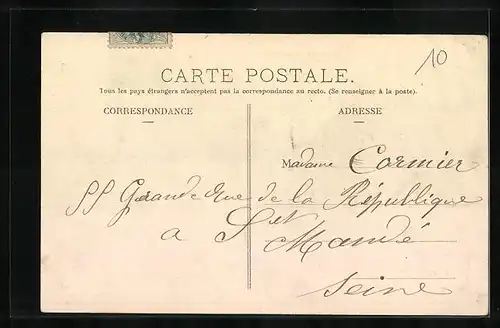 10
CARTE POSTALE.
Tous les pays étrangers n'acceptent pas la correspondance au recto. (Se renseigner à la poste).
CORRESPONDANCE
ADRESSE
Madame Cormier
Grande Rue de la République
a St Mandé
Seine